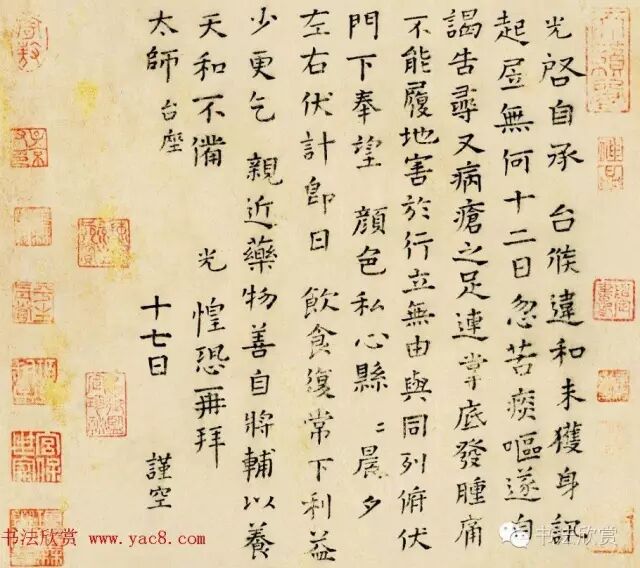 光啓自承　台候違和未獲身訊
起居無何十二日忽苦痰嘔遂自
謁告尋又病瘡之足連掌底發腫痛
不能履地害於行立無由與同列俯伏
門下奉望　顏色私心縣〻晨夕
左右伏計即日　飲食復常下利益
少更乞　親近藥物善自將輔以養
天和不備
光　惶恐再拜
太師　台座
十七日　謹空
书法欣赏 www.yac8.com
书法欣赏